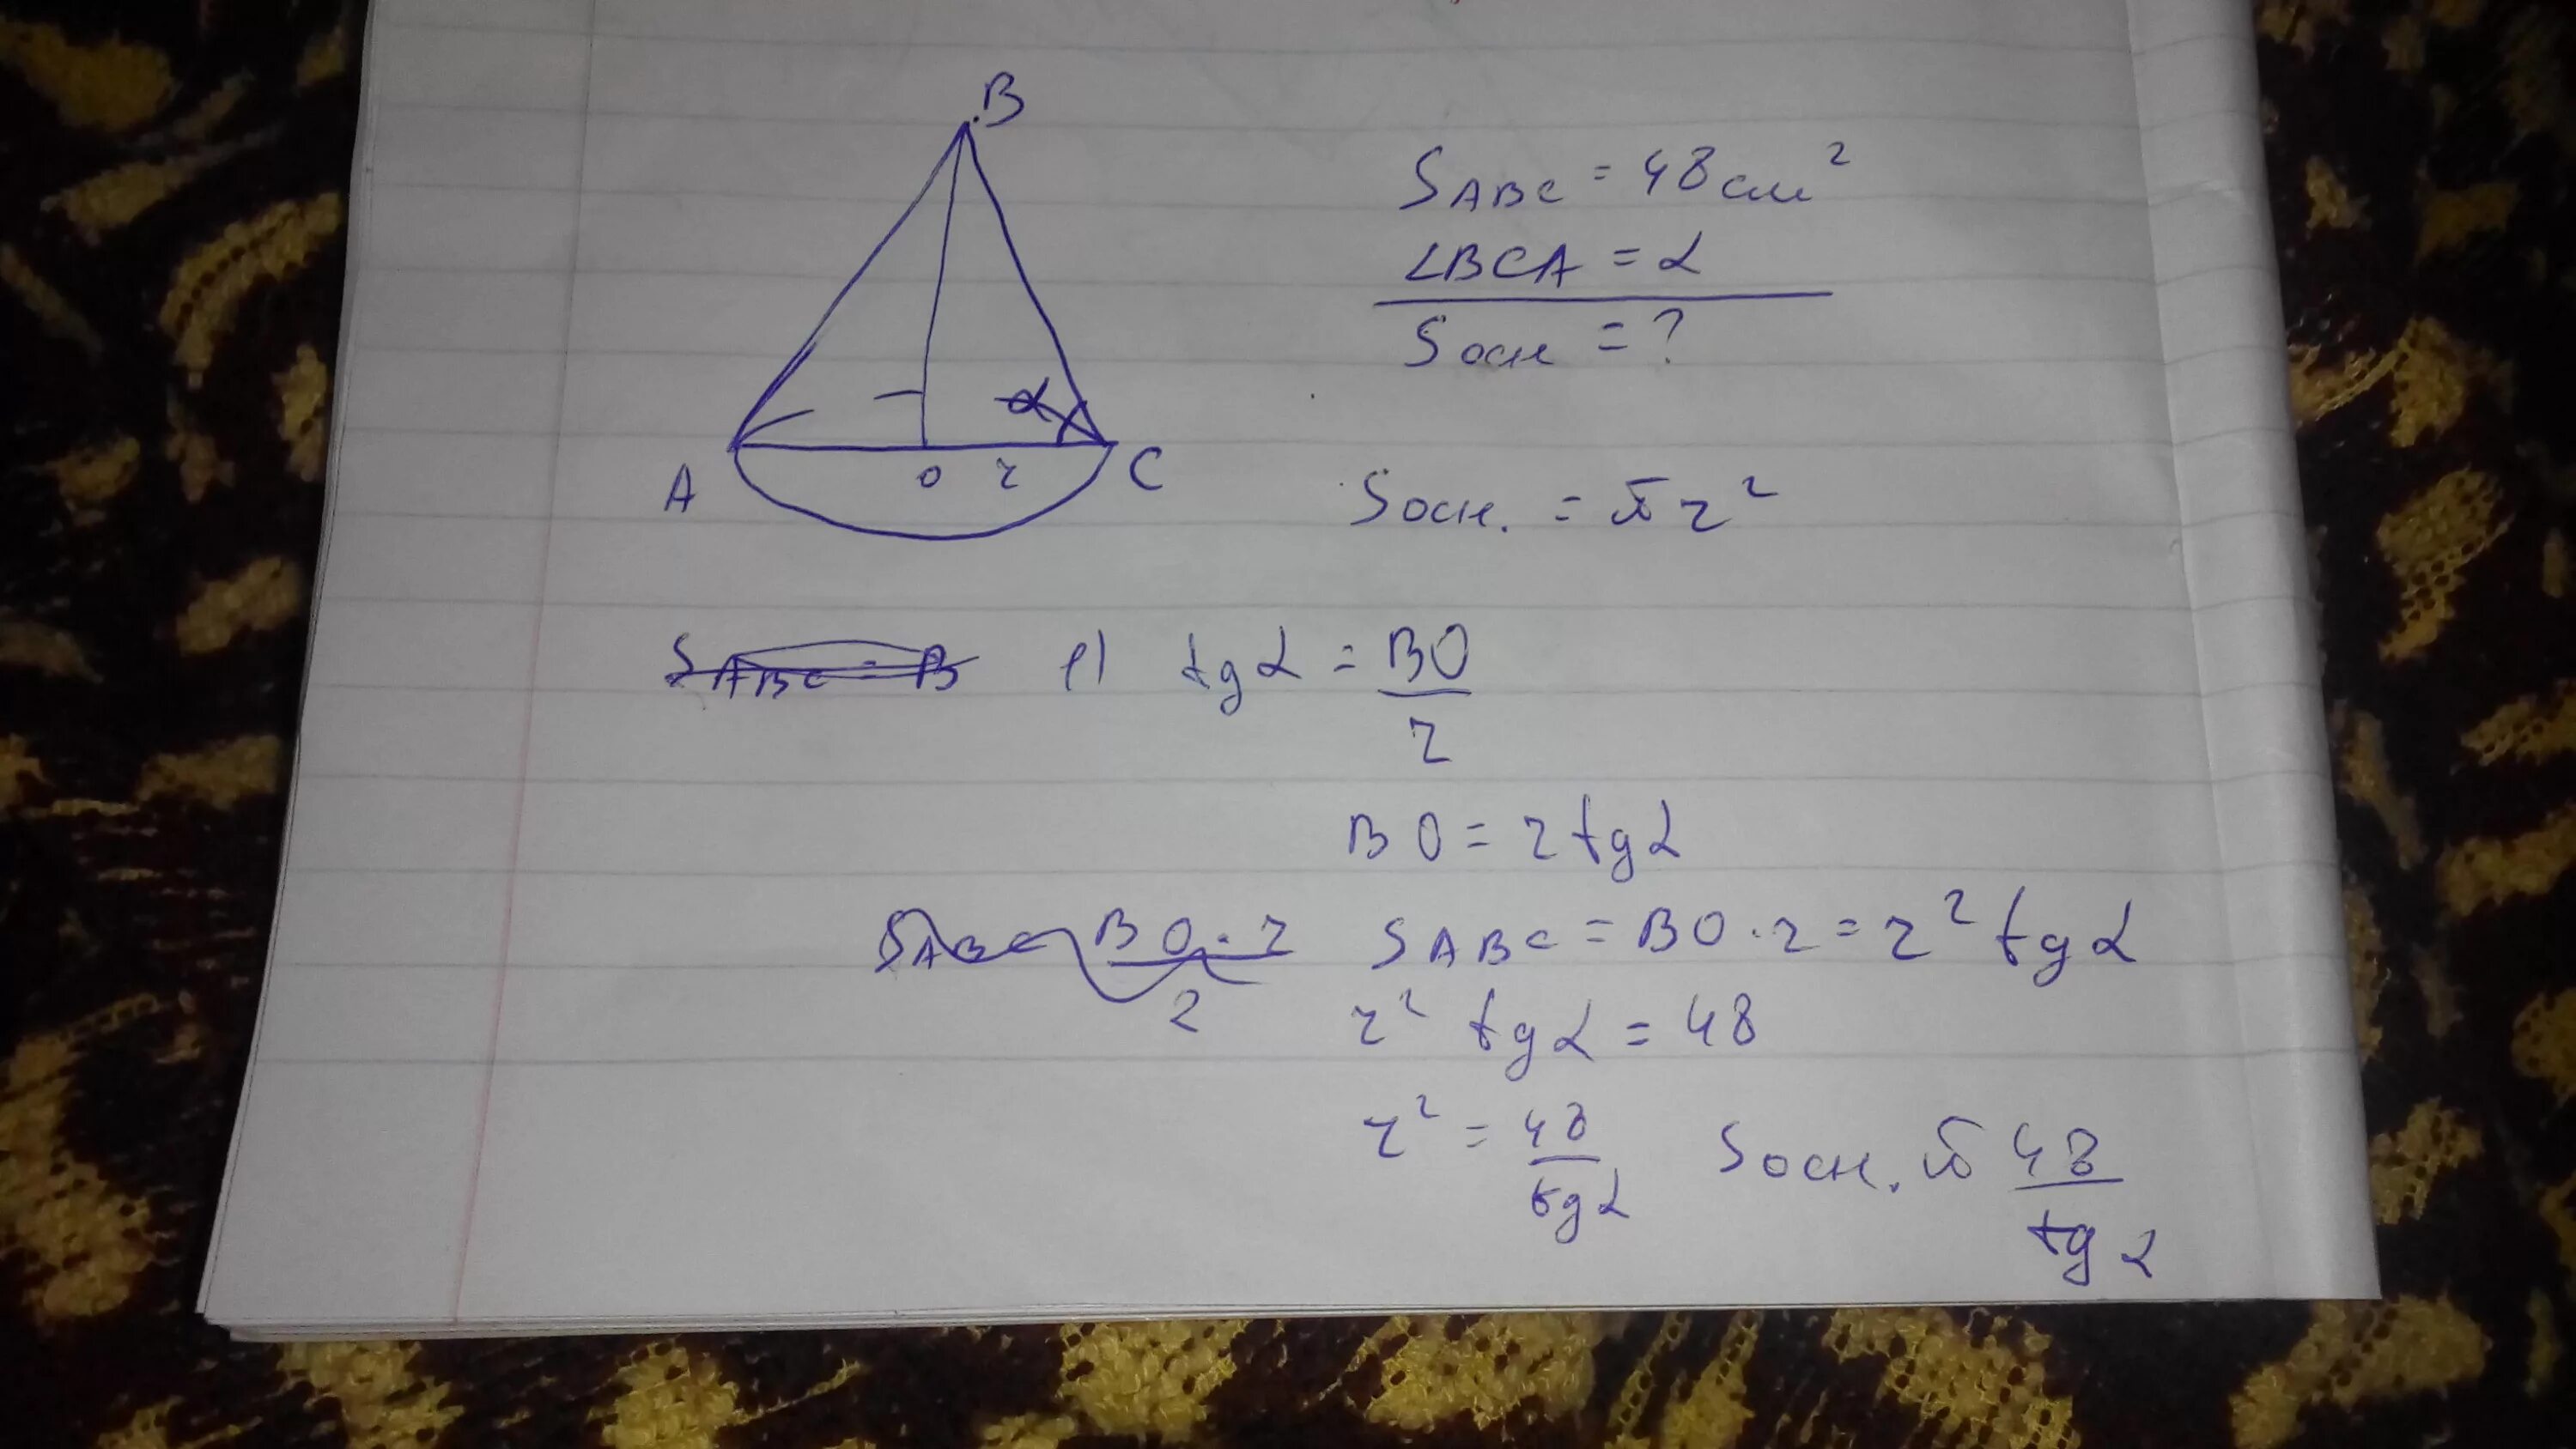 B
α
A
O
r
C
S ABC = 48 см²
∠BCA = α
S осн = ?
S осн. = π r²
S ABC = B
tg α = BO / r
BO = r tg α
S ABC = BO · r / 2
S ABC = BO · r = r² tg α
r² tg α = 48
r² = 48 / tg α
S осн. π 48 / tg α